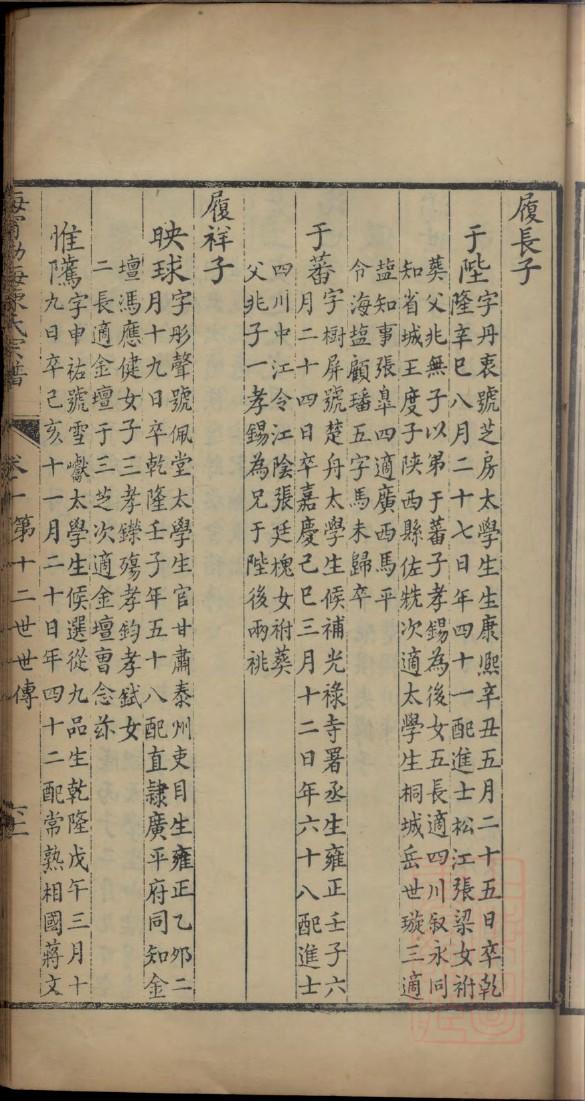 履長子
于陛字丹衷號芝房太學生生康熙辛丑五月二十五日卒乾
隆辛巳八月二十七日年四十一配進士松江張梁女祔
葬父兆無子以弟于蕃子孝錫為後女五長適四川叙永同
知省城王度子陕西縣佐兟次適太學生桐城岳世璇三適
盐知事張臯四適廣西馬平
令海盐顧璠五字馬未歸卒
于蕃字樹屏號楚舟太學生候補光祿寺署丞生雍正壬子六
月二十四日卒嘉慶己巳三月十二日年六十八配進士
四川中江令江陰張廷槐女祔葬
父兆子一孝錫為兄于陛後兩祧
履祥子
映球字彤聲號佩堂太學生官甘肅泰州吏目生雍正乙夘二
月十九日卒乾隆壬子年五十八配直隷廣平府同知金
壇馮應健女子三孝鑅殤孝鈞孝鉽女
二長適金壇于三芝次適金壇曺念茶
惟隲字申祐號雪巘太學生候選從九品生乾隆戊午三月十
九日卒己亥十一月二十日年四十二配常熟相國蔣文
海寧渤海陳氏宗譜
卷十
第十二世世傳